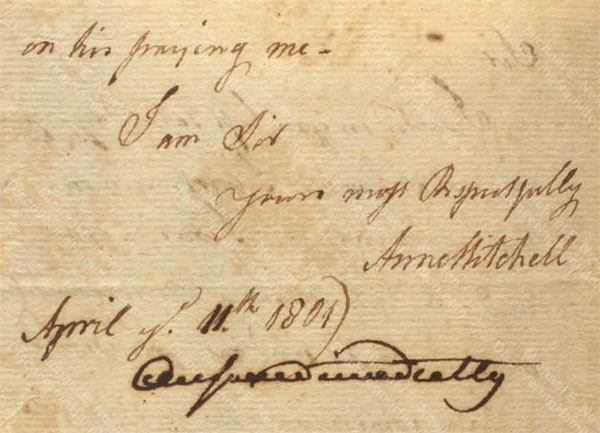 on his paying me -
I am Sir
yours most Respectfully
Anne Mitchell
April ye. 11.th 1801)
Answered imedeatly